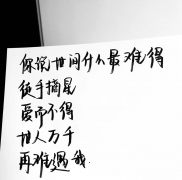 你说世间什么最难得
徒手摘星
爱而不得
世人万千
再难遇我